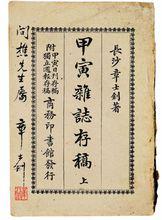 長沙章士釗著
甲寅雜誌存稿 上
附
甲寅日刊存稿
獨立週報存稿
商務印書館發行
先生
章士釗